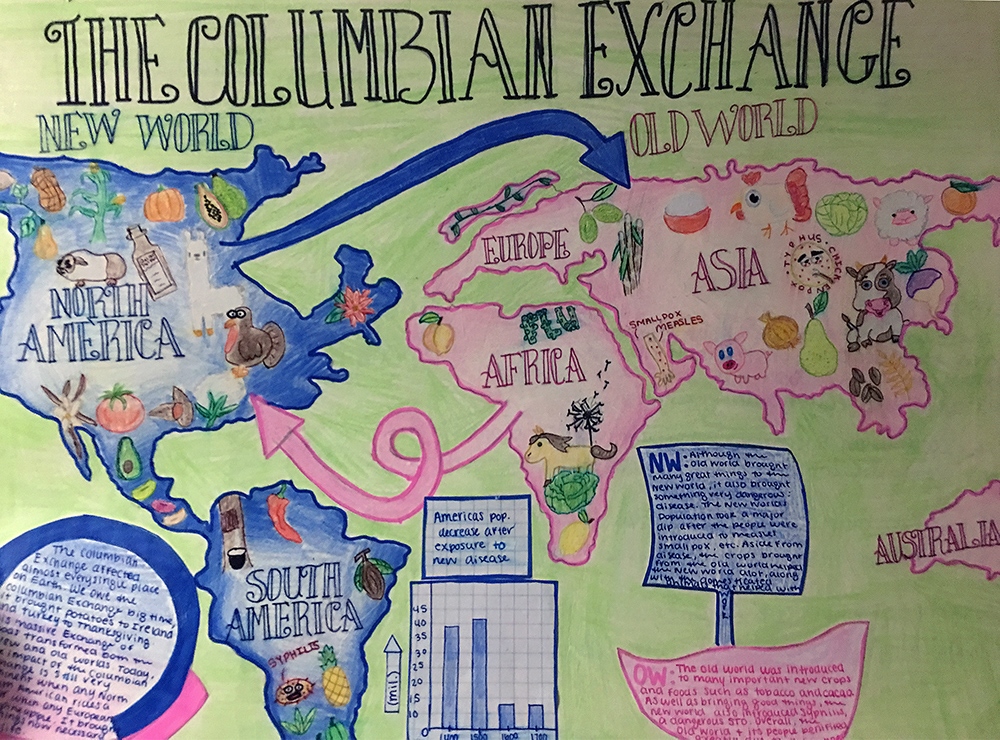 THE COLUMBIAN EXCHANGE
NEW WORLD
OLD WORLD
EUROPE
ASIA
TYPHUS · CHICKENPOX
NORTH
AMERICA
AFRICA
FLU
SMALLPOX
MEASLES
AUSTRALIA
SOUTH
AMERICA
SYPHILIS
Americas pop.
decrease after
exposure to
new disease
45
40
35
30
25
20
15
10
(mil.)
1400
1500
1600
1700
The Columbian
Exchange affected
almost every single place
on Earth. We owe the
Columbian Exchange big time,
it brought potatoes to Ireland
and turkey to Thanksgiving
is massive Exchange of
was transformed both the
new and old worlds Today.
impact of the Columbian
change is still very
when any North
American rides a
when any European
pineapple. It brought
things now necessary
life.
NW: Although the
old world brought
many great things to the
new world, it also brought
something very dangerous:
disease. The New World's
Population took a major
dip after the people were
introduced to measles,
small pox, etc. Aside from
disease, the crops brought
from the old world helped
the New World alot, along
with the domesticated
helped with
OW: The old world was introduced
to many important new crops
and foods such as tobacco and cacao
As well as bringing good things, the
new world also introduced Syphilis,
a dangerous STD. Overall, the
Old world + its people benifited,